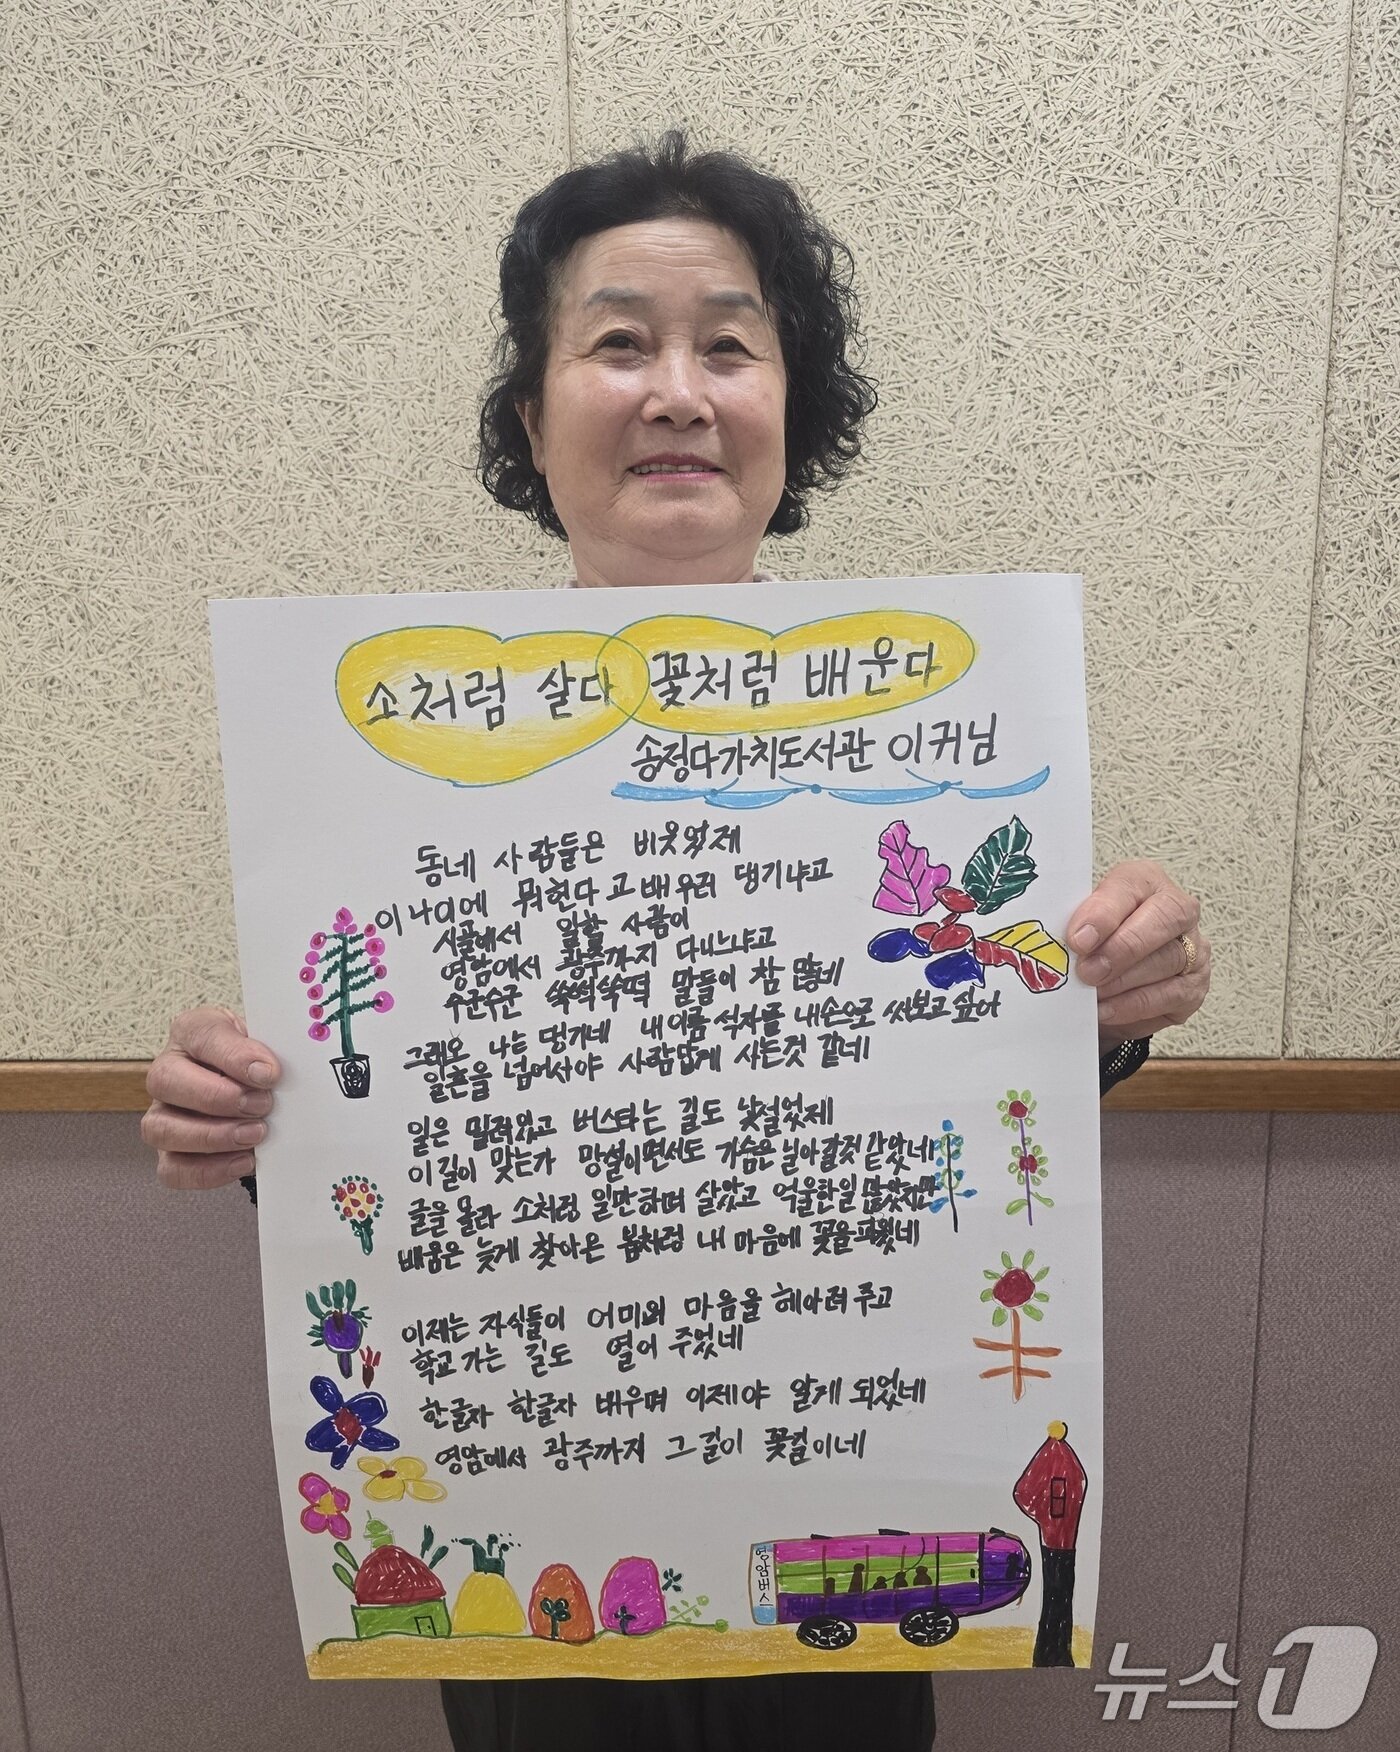 소처럼 살다 꽃처럼 배운다
송정다가치도서관 이귀님
동네 사람들은 비웃었제
이 나이에 뭐헌다고 배우러 댕기냐고
시골에서 일할 사람이
영암에서 광주까지 다니냐고
수군수군 쑥떡쑥떡 말들이 참 많네
그래도 나는 댕기네 내 이름 석자를 내손으로 써보고 싶어
일흔을 넘어서야 사람답게 사는것 같네
일은 밀려있고 버스타는 길도 낯설었제
이 길이 맞는가 망설이면서도 가슴은 날아갈것 같았네
글을 몰라 소처럼 일만하며 살았고 억울한일 많았지만
배움은 늦게 찾아온 봄처럼 내 마음에 꽃을피웠네
이제는 자식들이 어미의 마음을 헤아려 주고
학교 가는 길도 열어 주었네
한글자 한글자 배우며 이제야 알게 되었네
영암에서 광주까지 그 길이 꽃길이네
영암버스
뉴스1